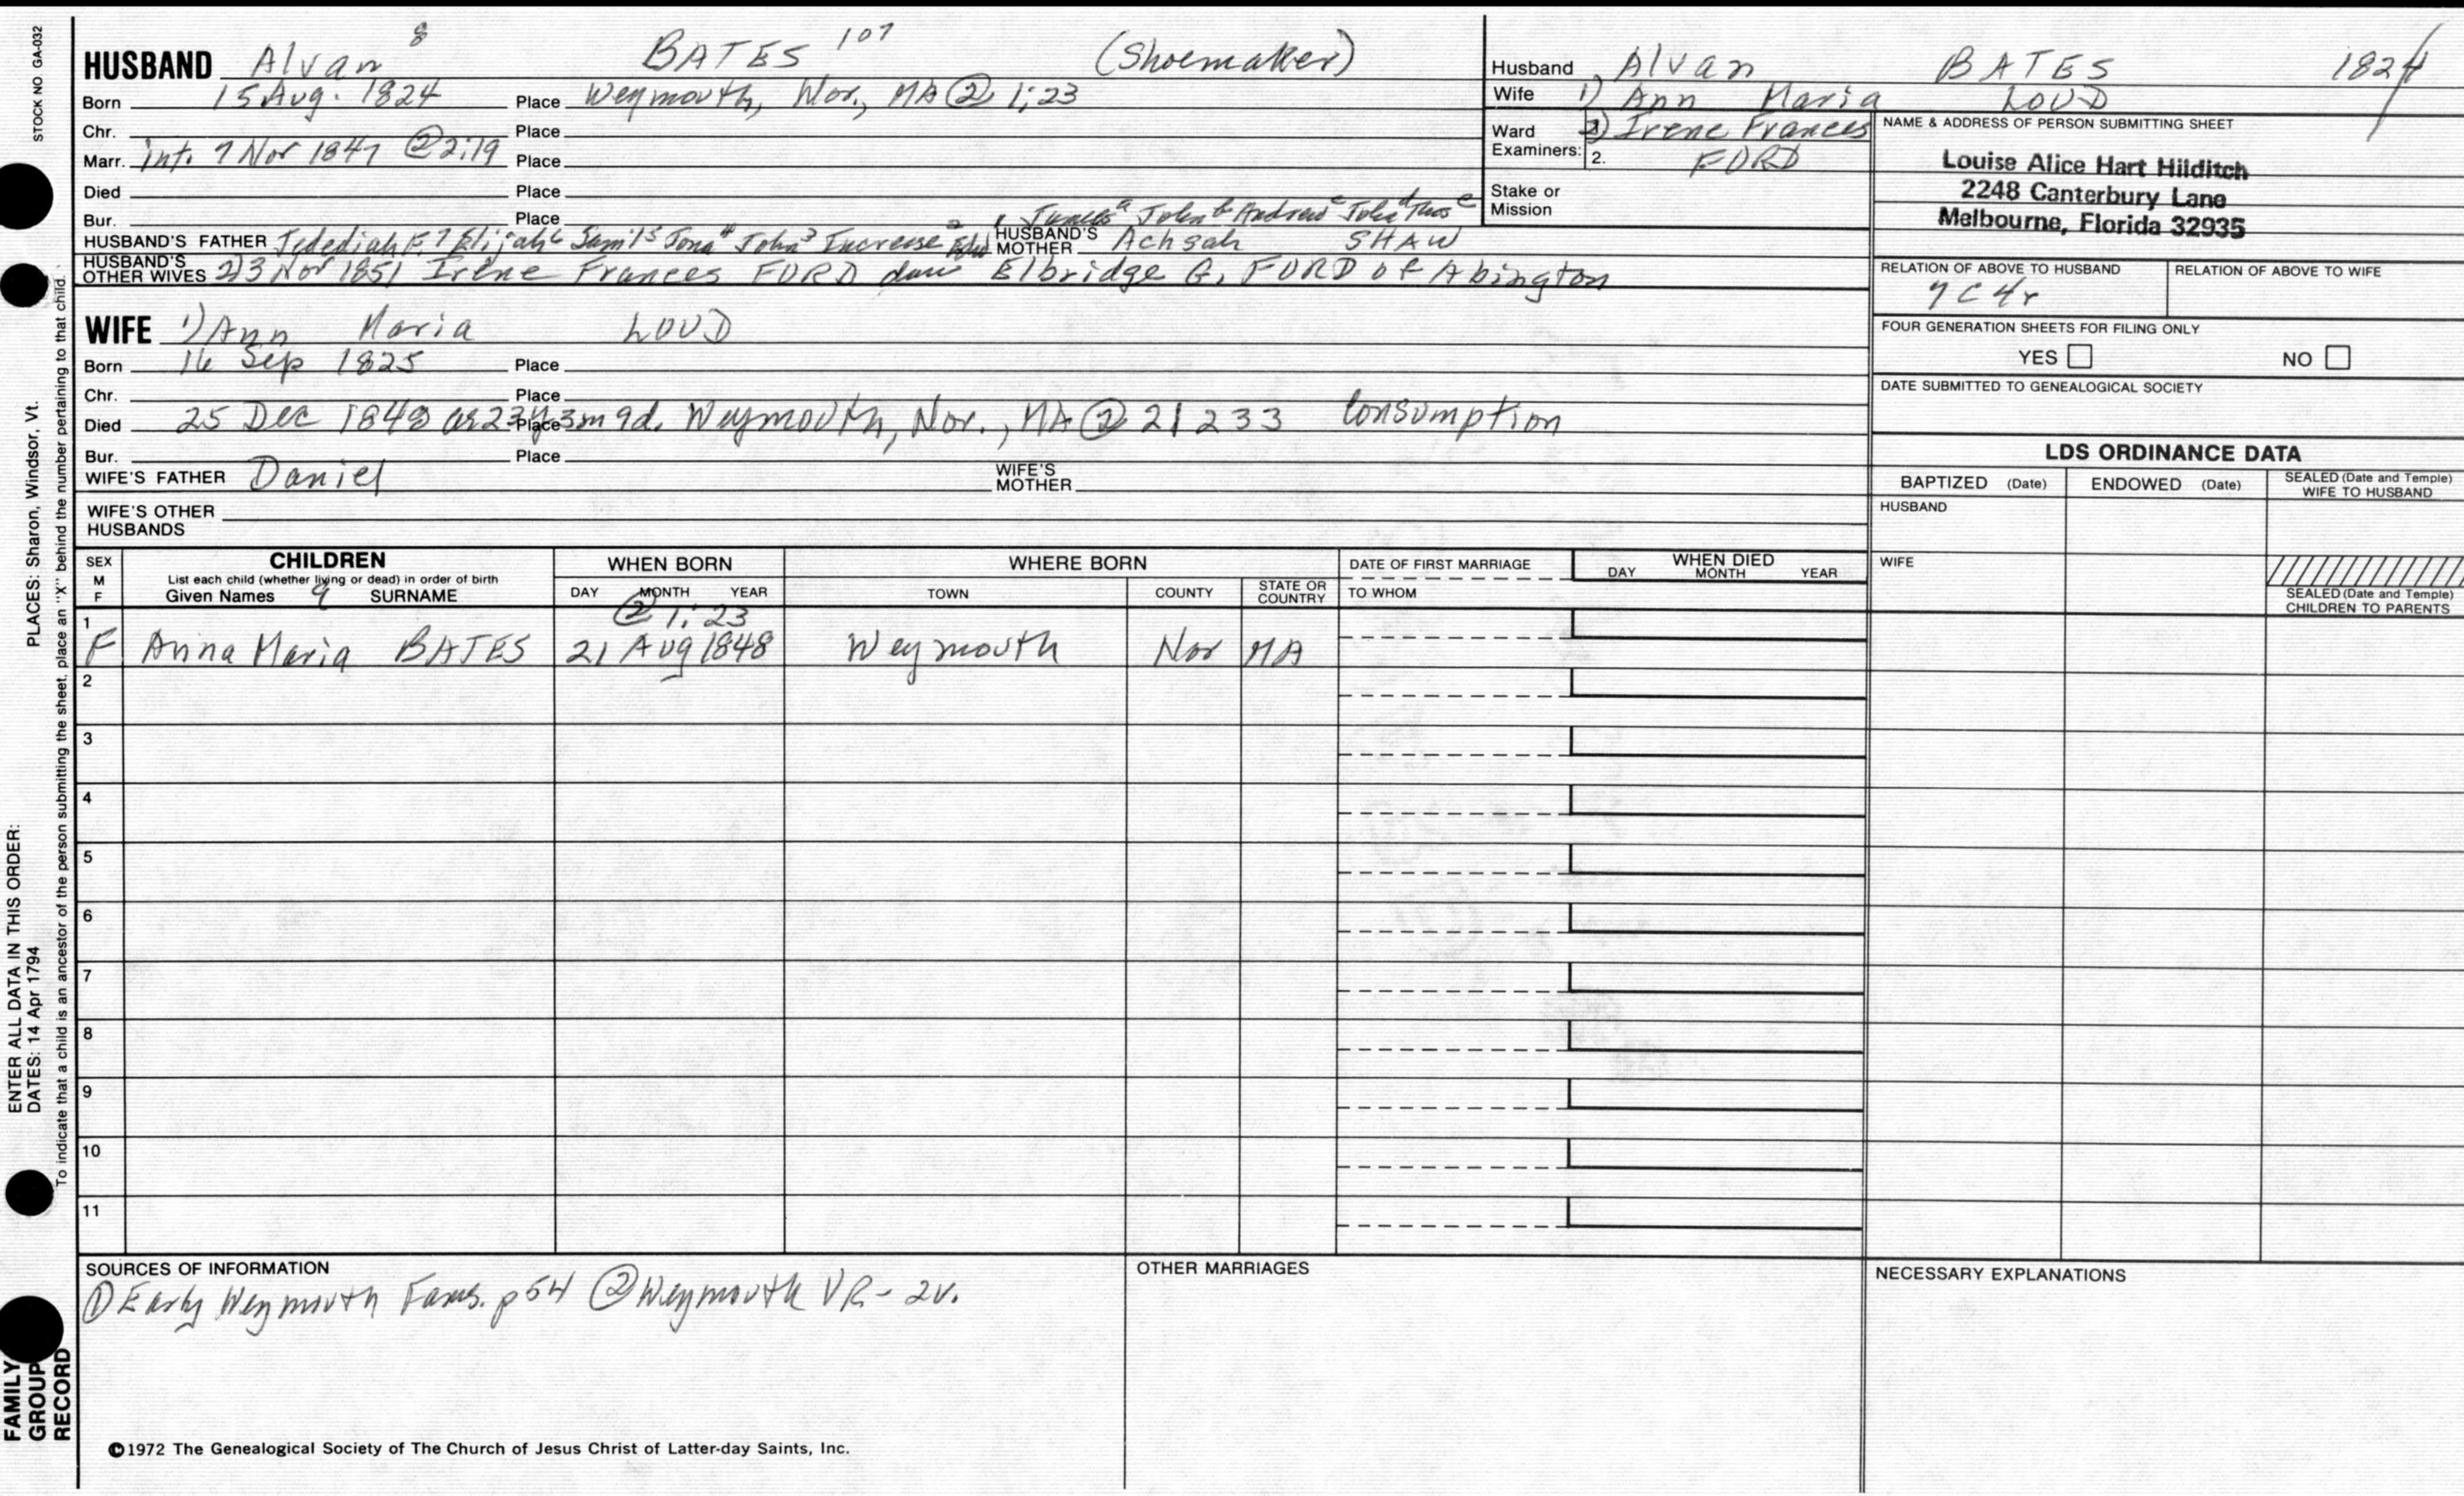 STOCK NO GA-032
HUSBAND Alvan 8 BATES 107 (Shoemaker)
Born 15 Aug. 1824 Place Weymouth, Nor., MA ② 1:23
Chr. Place
Marr. int. 7 Nor 1847 ② 2:19 Place
Died Place
Bur. Place
John b Andrew c John d Thos e
HUSBAND'S FATHER Jedediah F. 7 Elijah 6 Sam'l 5 Jona 4 John 3 Increase 2 Edw 1 HUSBAND'S MOTHER Achsah SHAW
HUSBAND'S OTHER WIVES 2) 3 Nov 1851 Irene Frances FORD dau Elbridge G. FORD of Abington
WIFE 1) Ann Maria LOUD
Born 16 Sep 1825 Place
Chr. Place
Died 25 Dec 1848 ae 23y 3m 9d. Place Weymouth, Nor., MA ② 2:233 Consumption
Bur. Place
WIFE'S FATHER Daniel WIFE'S MOTHER
WIFE'S OTHER HUSBANDS
Husband Alvan BATES 1824
Wife 1) Ann Maria LOUD
Ward Examiners: 1. 2) Irene Frances
2. FORD
Stake or Mission
NAME & ADDRESS OF PERSON SUBMITTING SHEET
Louise Alice Hart Hilditch
2248 Canterbury Lane
Melbourne, Florida 32935
RELATION OF ABOVE TO HUSBAND RELATION OF ABOVE TO WIFE
7C4r
FOUR GENERATION SHEETS FOR FILING ONLY
YES NO
DATE SUBMITTED TO GENEALOGICAL SOCIETY
LDS ORDINANCE DATA
BAPTIZED (Date) ENDOWED (Date) SEALED (Date and Temple) WIFE TO HUSBAND
HUSBAND
WIFE
SEALED (Date and Temple) CHILDREN TO PARENTS
SEX M F
CHILDREN
List each child (whether living or dead) in order of birth
Given Names 9 SURNAME
WHEN BORN
DAY MONTH YEAR
WHERE BORN
TOWN COUNTY STATE OR COUNTRY
DATE OF FIRST MARRIAGE
TO WHOM
WHEN DIED
DAY MONTH YEAR
② 1:23
1 F Anna Maria BATES 21 Aug 1848 Weymouth Nor MA
2
3
4
5
6
7
8
9
10
11
SOURCES OF INFORMATION
① Early Weymouth Fams. p 54 ② Weymouth VR - 2v.
OTHER MARRIAGES
NECESSARY EXPLANATIONS
©1972 The Genealogical Society of The Church of Jesus Christ of Latter-day Saints, Inc.
FAMILY GROUP RECORD
ENTER ALL DATA IN THIS ORDER:
DATES: 14 Apr 1794 PLACES: Sharon, Windsor, Vt.
To indicate that a child is an ancestor of the person submitting the sheet, place an "X" behind the number pertaining to that child.